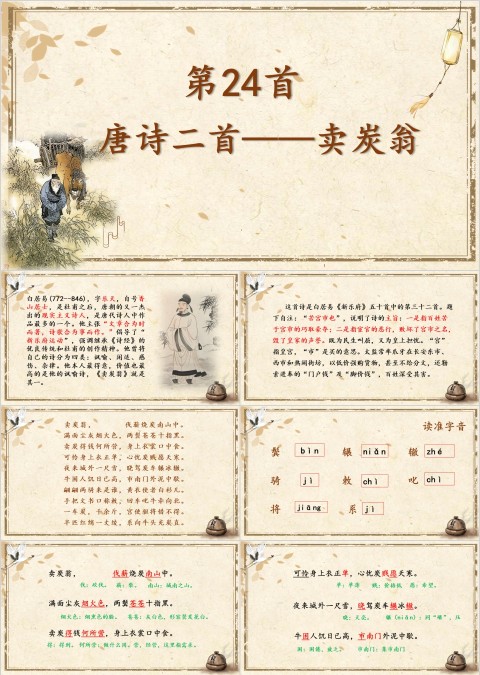 第24首
唐诗二首——卖炭翁
白居易(772—846)，字乐天，自号香
山居士，是杜甫之后，唐朝的又一杰
出的现实主义诗人，是唐代诗人中作
品最多的一个。他主张“文章合为时
而著，诗歌合为事而作。”倡导了“
新乐府运动”，强调继承《诗经》的
优良传统和杜甫的创作精神。他曾将
自己的诗分为四类：讽喻、闲适、感
伤、杂律。他本人最得意，价值也最
高的是他的讽喻诗，《卖炭翁》就是
其一。
这首诗是白居易《新乐府》五十首中的第三十二首。题
下自注：“苦宫市也”，说明了诗的主旨：一是指百姓苦
于宫市的巧取豪夺；二是指宦官的恶行，败坏了宫市之名，
毁了皇家的声誉。既为民生叫疾，又为皇上担忧。“宫”
指皇宫，“市”是买的意思。太监常率爪牙在长安东市、
西市和热闹街坊，以低价强购货物，甚至不给分文，还勒
索进奉的“门户钱”及“脚价钱”，百姓深受其害。
卖炭翁，伐薪烧炭南山中。
满面尘灰烟火色，两鬓苍苍十指黑。
卖炭得钱何所营？身上衣裳口中食。
可怜身上衣正单，心忧炭贱愿天寒。
夜来城外一尺雪，晓驾炭车辗冰辙。
牛困人饥日已高，市南门外泥中歇。
翩翩两骑来是谁？黄衣使者白衫儿。
手把文书口称敕，回车叱牛牵向北。
一车炭，千余斤，宫使驱将惜不得。
半匹红绡一丈绫，系向牛头充炭直。
读准字音
鬓 bìn 辗 niǎn 辙 zhé
骑 jì 敕 chì 叱 chì
将 jiāng 系 jì
卖炭翁，伐薪烧炭南山中。
满面尘灰烟火色，两鬓苍苍十指黑。
卖炭得钱何所营，身上衣裳口中食。
可怜身上衣正单，心忧炭贱愿天寒。
夜来城外一尺雪，晓驾炭车辗冰辙。
牛困人饥日已高，市南门外泥中歇。